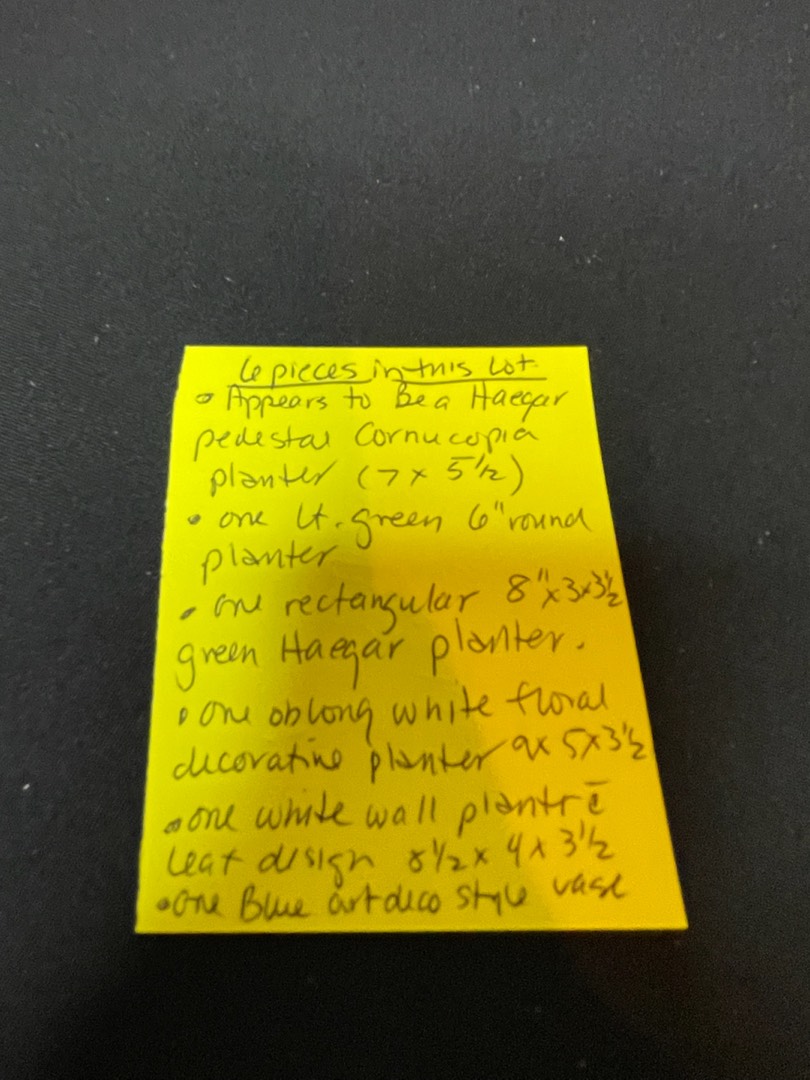 6 pieces in this Lot
• Appears to Be a Haegar
pedestal Cornucopia
planter (7 x 5 1/2)
• one Lt. green 6" round
planter
• one rectangular 8"x3x3 1/2
green Haegar planter.
• one oblong white floral
decorative planter 9x 5x3 1/2
• one white wall plantr c̄
leaf design 8 1/2 x 4 x 3 1/2
• one Blue art deco style vase